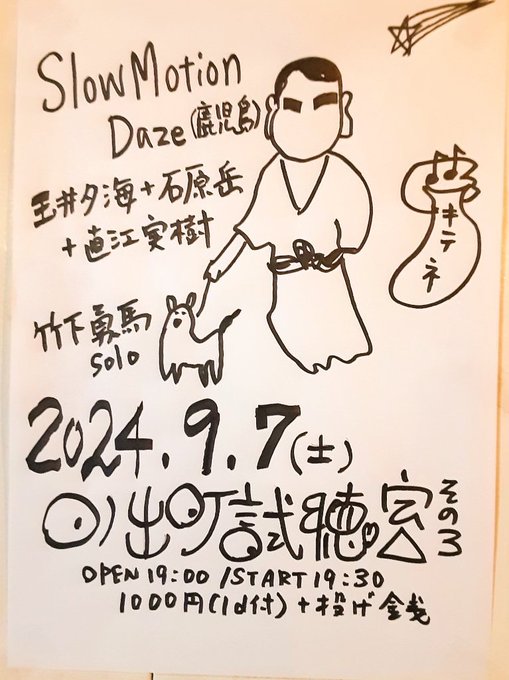 Slow Motion
Daze (鹿児島)
玉井夕海+石原岳
+直江実樹
竹下勇馬
solo
キテネ
2024.9.7(土)
日ノ出町試聴室
その3
OPEN 19:00 / START 19:30
1000円(1d付)+投げ銭